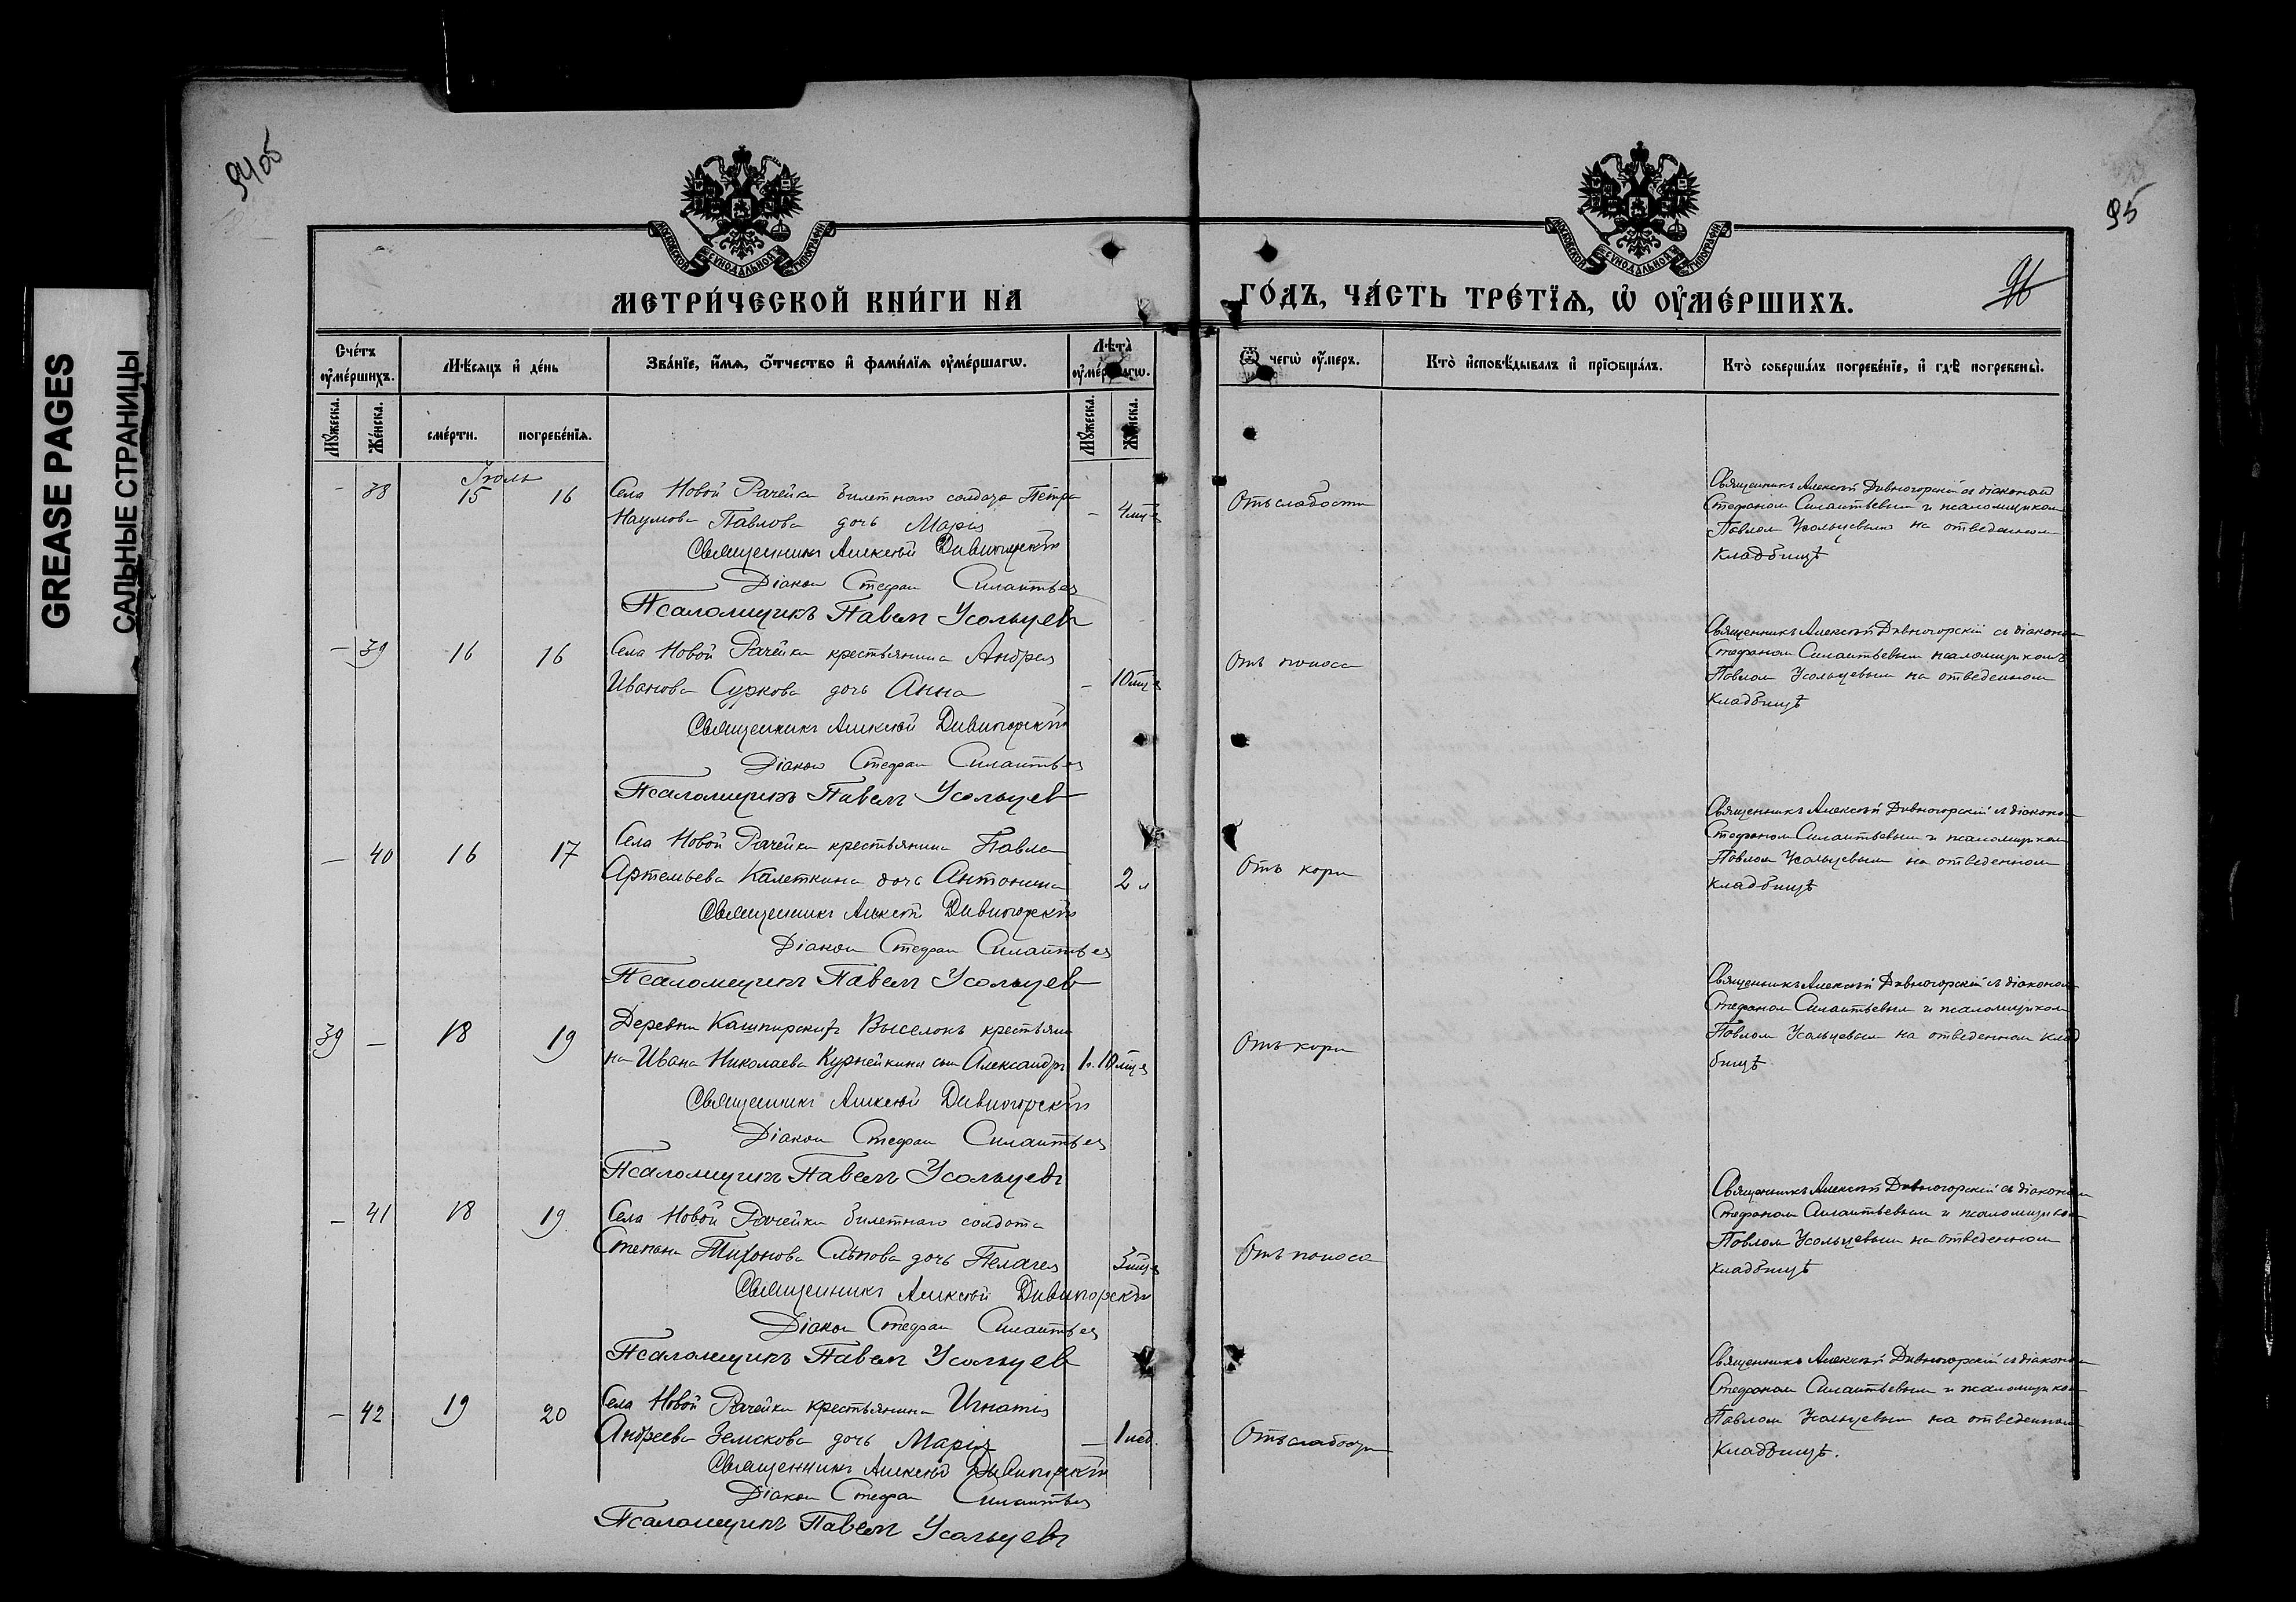 GREASE PAGES
САЛЬНЫЕ СТРАНИЦЫ
94об
95
96
МОСКОВСКОЙ СѴНОДАЛЬНОЙ ТИПОГРАФІИ
МОСКОВСКОЙ СѴНОДАЛЬНОЙ ТИПОГРАФІИ
МЕТРИ́ЧЕСКОЙ КНИ́ГИ НА
ГО́ДЪ, ЧА́СТЬ ТРЕ́ТЇѦ, Ѡ҆ ОУ҆МЕ́РШИХЪ.
Счётъ оу҆ме́ршихъ.
Мѣ́сѧцъ и҆ де́нь
Зва́нїе, и҆́мѧ, ѻ҆́тчество и҆ фами́лїѧ оу҆ме́ршагѡ.
Лѣ́та̀ оу҆ме́ршагѡ.
Ѿ чегѡ̀ оу҆́меръ.
Кто̀ и҆сповѣ́дывалъ и҆ прїѡбща́лъ.
Кто̀ соверша́лъ погребе́нїе, и҆ гдѣ̀ погребены̀.
Мꙋ́жеска.
Же́нска.
сме́рти.
погребе́нїѧ.
Мꙋ́жеска.
Же́нска.
Іюль
- 38 15 16 Села Новой Рачейки билетнаго солдата Петра
Наумова Павлова дочь Марія - 4 мца
Отъ слабости
Священникъ Алексѣй Дивногорскій
Діаконъ Стефанъ Силантьев
Псаломщикъ Павелъ Усольцевъ
Священникъ Алексѣй Дивногорскій съ діакономъ
Стефаномъ Силантьевым и псаломщиком
Павлом Усольцевымъ на отведенном
кладбищѣ
- 39 16 16 Села Новой Рачейки крестьянина Андрея
Иванова Суркова дочь Анна - 10 мца
Отъ поноса
Священникъ Алексѣй Дивногорскій
Діаконъ Стефанъ Силантьев
Псаломщикъ Павелъ Усольцевъ
Священникъ Алексѣй Дивногорскій съ діаконом
Стефаном Силантьевым псаломщикомъ
Павлом Усольцевым на отведенном
кладбищѣ
- 40 16 17 Села Новой Рачейки крестьянина Павла
Артемьева Калеткина дочь Антонина 2 л
Отъ кори
Священникъ Алексѣй Дивногорскій
Діаконъ Стефанъ Силантьев
Псаломщикъ Павелъ Усольцевъ
Священникъ Алексѣй Дивногорскій съ діаконом
Стефаном Силантьевым и псаломщиком
Павлом Усольцевым на отведенном
кладбищѣ
39 - 18 19 Деревни Кашпирскихъ Выселокъ крестьяни
на Ивана Николаева Курнейкина сын Александръ 1 г. 10 мца
Отъ кори
Священникъ Алексѣй Дивногорскій
Діаконъ Стефанъ Силантьев
Псаломщикъ Павелъ Усольцевъ
Священникъ Алексѣй Дивногорскій съ діаконом
Стефаном Силантьевым и псаломщиком
Павлом Усольцевым на отведенном клад
бищѣ
- 41 18 19 Села Новой Рачейки билетнаго солдата
Степана Тихонова Слѣпова дочь Пелагея 3 мца
Отъ поноса
Священникъ Алексѣй Дивногорскій
Діаконъ Стефанъ Силантьев
Псаломщикъ Павелъ Усольцевъ
Священникъ Алексѣй Дивногорскій съ діаконом
Стефаном Силантьевым и псаломщиком
Павлом Усольцевым на отведенном
кладбищѣ
- 42 19 20 Села Новой Рачейки крестьянина Игнатія
Андреева Земскова дочь Марія - 1 нед.
Отъ слабости
Священникъ Алексѣй Дивногорскій
Діаконъ Стефанъ Силантьев
Псаломщикъ Павелъ Усольцевъ
Священникъ Алексѣй Дивногорскій съ діаконом
Стефаном Силантьевым и псаломщиком
Павлом Усольцевым на отведенном
кладбищѣ.